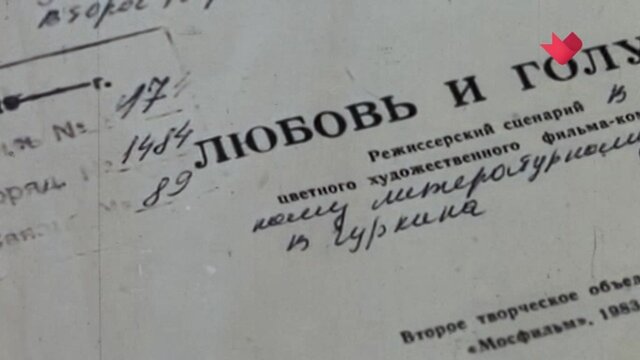 второе
г.
№ 17
1484
89
ЛЮБОВЬ И ГОЛУ
Режиссерский сценарий В
цветного художественного фильма-ком
ному литературному
В Гуркина
Второе творческое объед
«Мосфильм», 1983